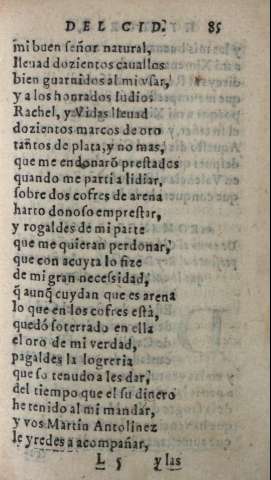 DEL CID. 85
mi buen señor natural,
lleuad dozientos cauallos
bien guarnidos al mi vsar,
y a los honrados Iudios
Rachel, y Vidas lleuad
dozientos marcos de oro
tantos de plata, y no mas,
que me endonarõ prestados
quando me parti a lidiar,
sobre dos cofres de arena
harto donoso emprestar,
y rogaldes de mi parte
que me quieran perdonar,
que con acuyta lo fize
de mi gran necessidad,
q̃ aunq̃ cuydan que es arena
lo que en los cofres està,
quedó soterrado en ella
el oro de mi verdad,
pagaldes la logreria
que so tenudo a les dar,
del tiempo que el su dinero
he tenido al mi mandar,
y vos Martin Antolinez
le yredes a acompañar,
L 5 y las